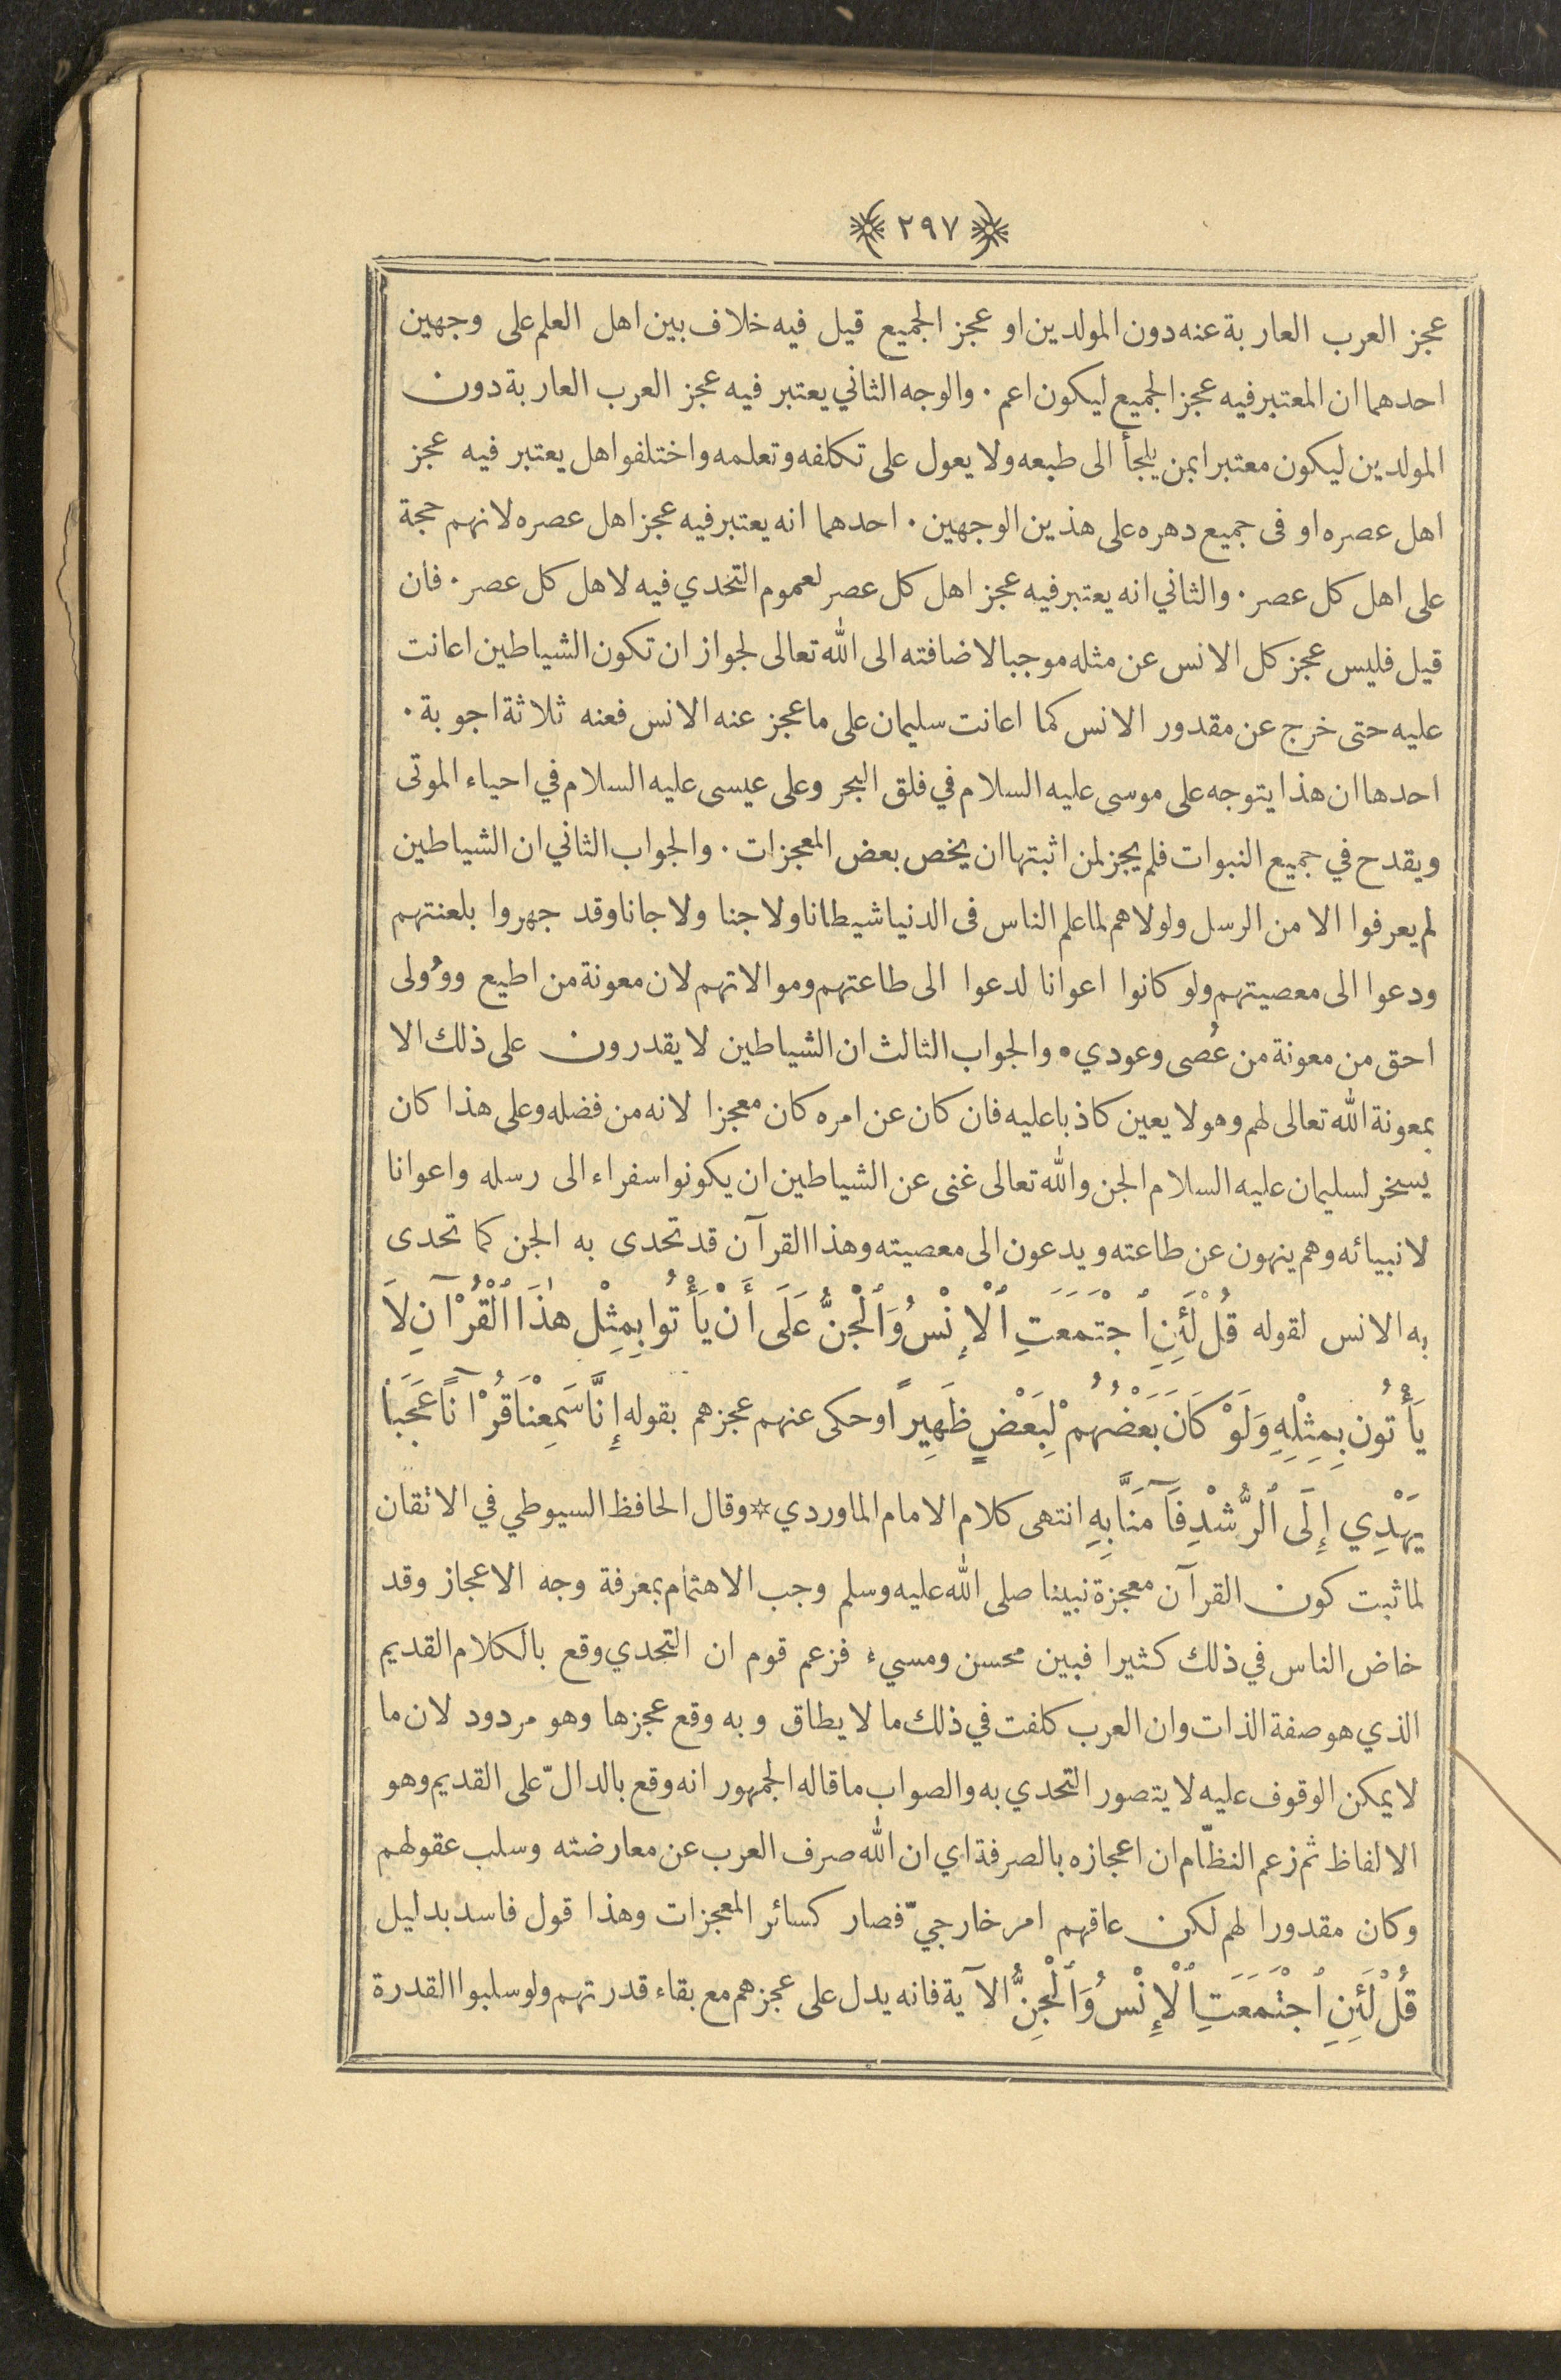 ٢٩٧
عجز العرب العاربة عنه دون المولدين او عجز الجميع قيل فيه خلاف بين اهل العلم على وجهين
احدهما ان المعتبر فيه عجز الجميع ليكون اعم . والوجه الثاني يعتبر فيه عجز العرب العاربة دون
المولدين ليكون معتبرا بمن يلجأ الى طبعه ولا يعول على تكلفه وتعلمه واختلفوا هل يعتبر فيه عجز
اهل عصره او فى جميع دهره على هذين الوجهين . احدهما انه يعتبر فيه عجز اهل عصره لانهم حجة
على اهل كل عصر . والثاني انه يعتبر فيه عجز اهل كل عصر لعموم التحدي فيه لاهل كل عصر . فان
قيل فليس عجز كل الانس عن مثله موجبا لاضافته الى الله تعالى لجواز ان تكون الشياطين اعانت
عليه حتى خرج عن مقدور الانس كما اعانت سليمان على ما عجز عنه الانس فعنه ثلاثة اجوبة .
احدها ان هذا يتوجه على موسى عليه السلام في فلق البحر وعلى عيسى عليه السلام في احياء الموتى
ويقدح في جميع النبوات فلم يجز لمن اثبتها ان يخص بعض المعجزات . والجواب الثاني ان الشياطين
لم يعرفوا الا من الرسل ولولاهم لما علم الناس فى الدنيا شيطانا ولا جنا ولا جانا وقد جهروا بلعنتهم
ودعوا الى معصيتهم ولو كانوا اعوانا لدعوا الى طاعتهم وموالاتهم لان معونة من اطيع ووُولى
احق من معونة من عُصى وعودي . والجواب الثالث ان الشياطين لا يقدرون على ذلك الا
بمعونة الله تعالى لهم وهو لا يعين كاذبا عليه فان كان عن امره كان معجزا لانه من فضله وعلى هذا كان
يسخر لسليمان عليه السلام الجن والله تعالى غنى عن الشياطين ان يكونوا سفراء الى رسله واعوانا
لانبيائه وهم ينهون عن طاعته ويدعون الى معصيته وهذا القرآن قد تحدى به الجن كما تحدى
به الانس لقوله قُلْ لَئِنِ ٱجْتَمَعَتِ ٱلْإِنْسُ وَٱلْجِنُّ عَلَى أَنْ يَأْتُوا بِمِثْلِ هٰذَا ٱلْقُرْآنِ لاَ
يَأْتُونَ بِمِثْلِهِ وَلَوْ كَانَ بَعْضُهُمْ لِبَعْضٍ ظَهِيرًا وحكى عنهم عجزهم بقوله إِنَّا سَمِعْنَا قُرْآنًا عَجَبًا
يَهْدِي إِلَى ٱلرُّشْدِ فَآمَنَّا بِهِ انتهى كلام الامام الماوردي * وقال الحافظ السيوطي في الاتقان
لما ثبت كون القرآن معجزة نبينا صلى الله عليه وسلم وجب الاهتمام بمعرفة وجه الاعجاز وقد
خاض الناس في ذلك كثيرا فبين محسن ومسيء فزعم قوم ان التحدي وقع بالكلام القديم
الذي هو صفة الذات وان العرب كلفت في ذلك ما لا يطاق وبه وقع عجزها وهو مردود لان ما
لا يمكن الوقوف عليه لا يتصور التحدي به والصواب ما قاله الجمهور انه وقع بالدالّ على القديم وهو
الالفاظ ثم زعم النظّام ان اعجازه بالصرفة اي ان الله صرف العرب عن معارضته وسلب عقولهم
وكان مقدورا لهم لكن عاقهم امر خارجيّ فصار كسائر المعجزات وهذا قول فاسد بدليل
قُلْ لَئِنِ ٱجْتَمَعَتِ ٱلْإِنْسُ وَٱلْجِنُّ الآية فانه يدل على عجزهم مع بقاء قدرتهم ولو سلبوا القدرة